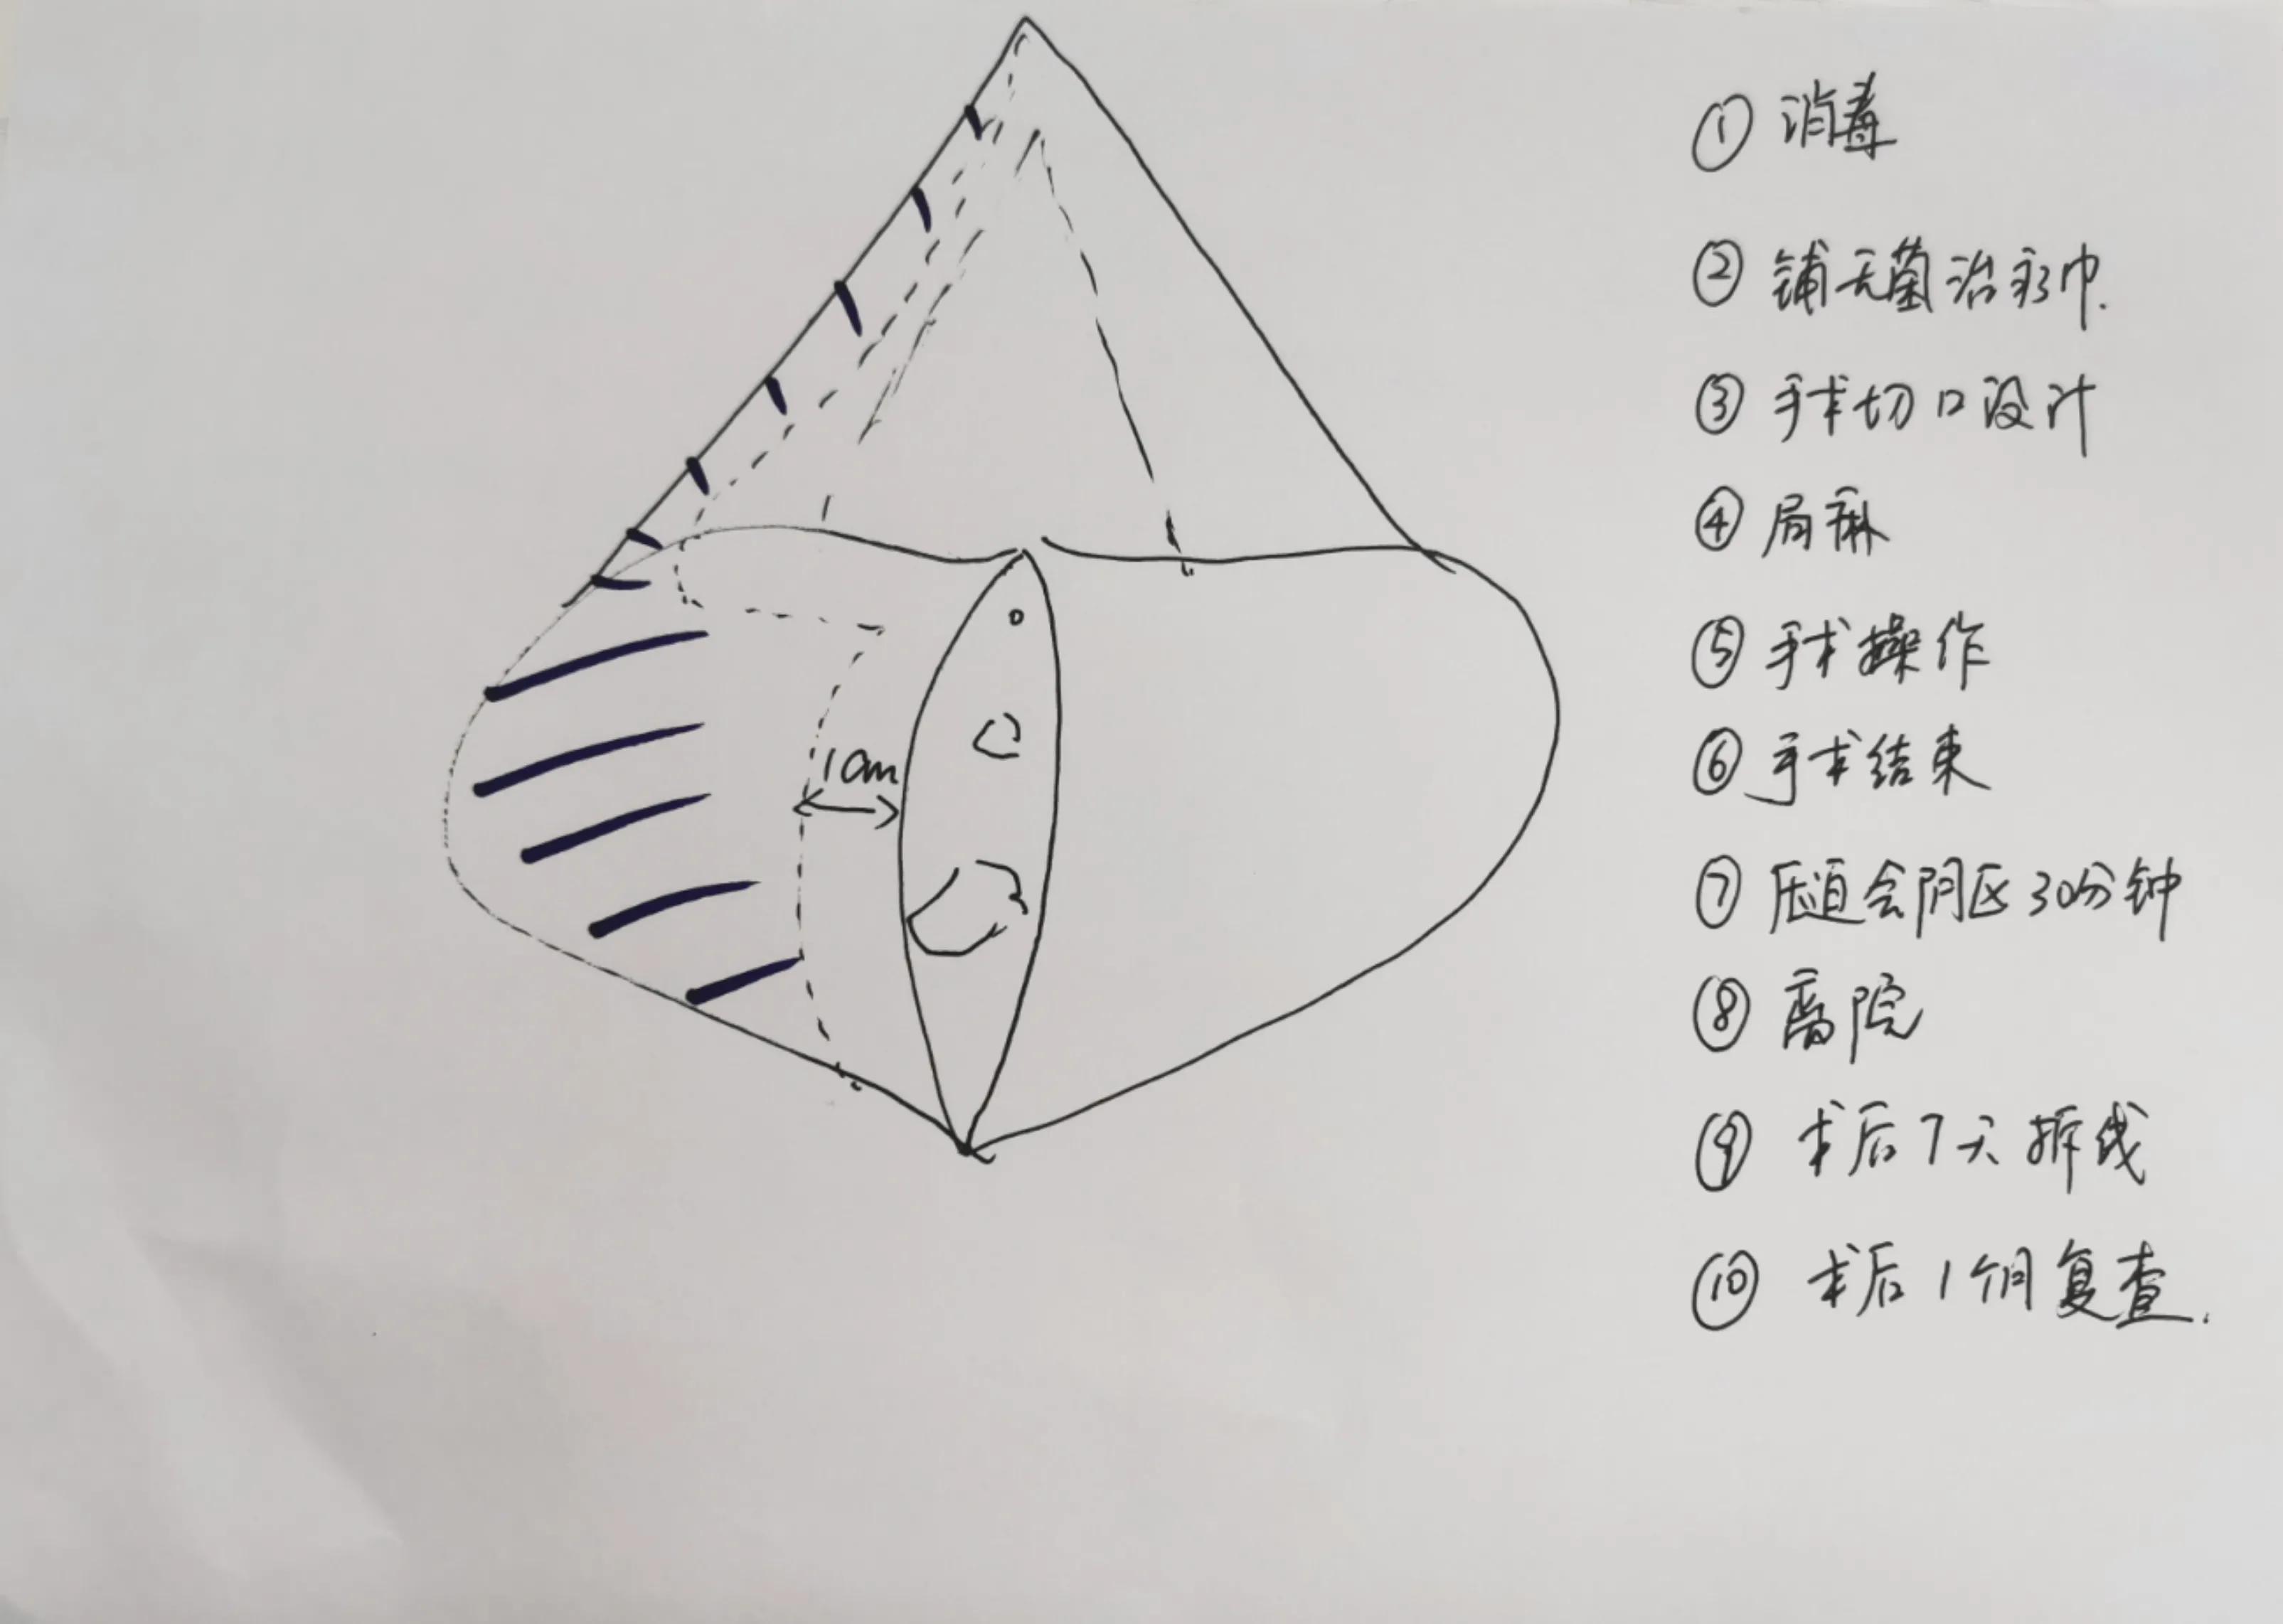 1cm
① 消毒
② 铺无菌治疗巾.
③ 手术切口设计
④ 局麻
⑤ 手术操作
⑥ 手术结束
⑦ 压迫会阴区30分钟
⑧ 离院
⑨ 术后7天拆线
⑩ 术后1个月复查.